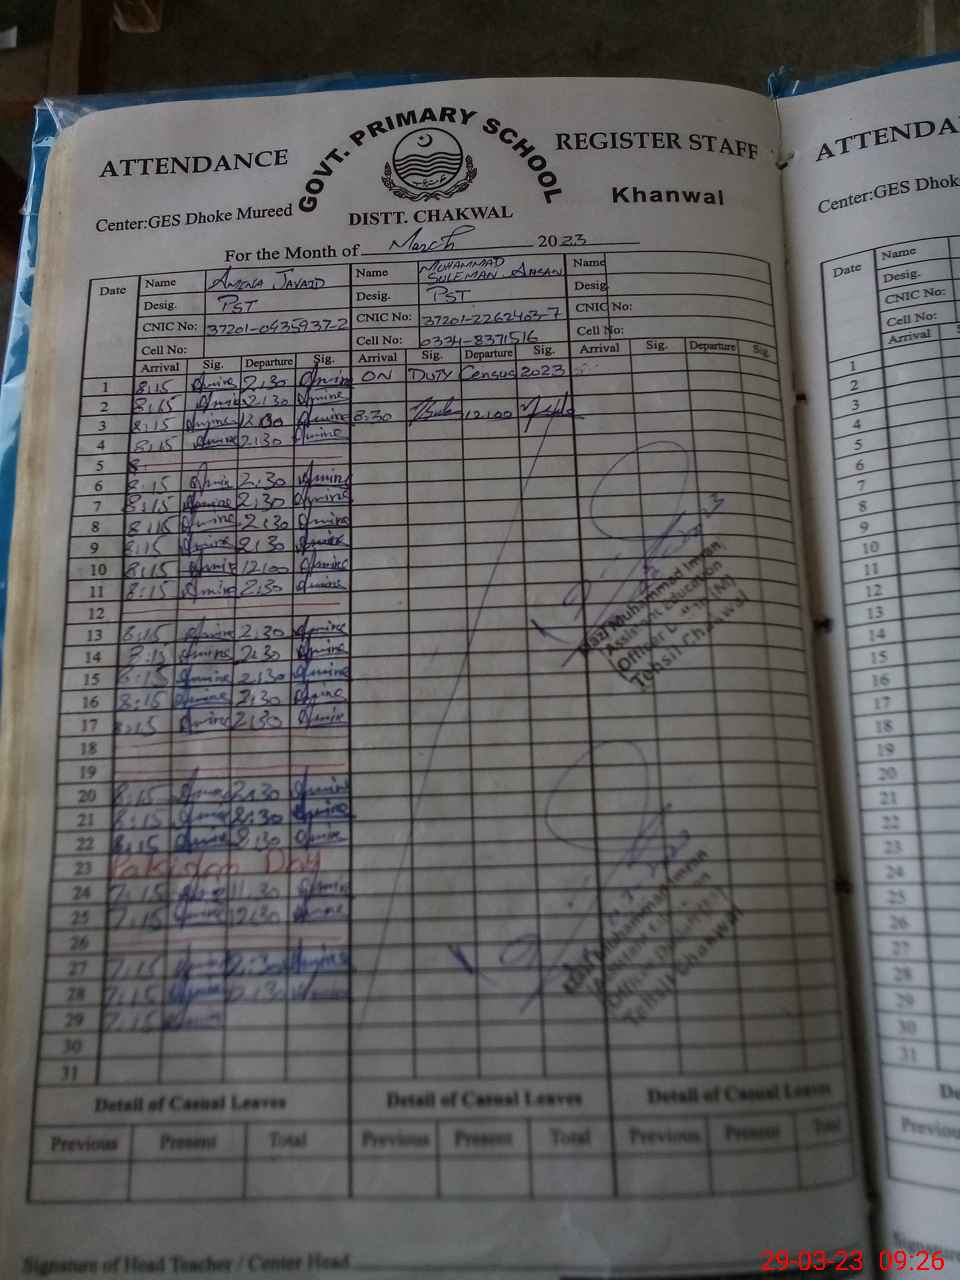 GOVT. PRIMARY SCHOOL
ATTENDANCE REGISTER STAFF
Center:GES Dhoke Mureed Khanwal
DISTT. CHAKWAL
For the Month of March 2023
Date Name AMINA JAVAID Name MUHAMMAD SULEMAN AHSAN Name
Desig. PST Desig. PST Desig.
CNIC No: 37201-0435937-2 CNIC No: 37201-2262403-7 CNIC No:
Cell No: Cell No: 0334-8371516 Cell No:
Arrival Sig. Departure Sig. Arrival Sig. Departure Sig. Arrival Sig. Departure Sig.
1 8:15 Amina 2:30 Amina ON DUTY Census 2023
2 8:15 Amina 2:30 Amina
3 8:15 Amina 12:00 Amina 8:30 12:00
4 8:15 Amina 2:30 Amina
5 8:
6 8:15 Amina 2:30 Amina
7 8:15 Amina 2:30 Amina
8 8:15 Amina 2:30 Amina
9 8:15 Amina 2:30 Amina
10 8:15 Amina 12:00 Amina
11 8:15 Amina 2:30 Amina
12
13 8:15 Amina 2:30 Amina
14 8:15 Amina 2:30 Amina
15 8:15 Amina 2:30 Amina
16 8:15 Amina 2:30 Amina
17 8:15 Amina 2:30 Amina
18
19
20 8:15 Amina 2:30 Amina
21 8:15 Amina 2:30 Amina
22 8:15 Amina 2:30 Amina
23 Pakistan Day
24 7:15 Amina 11:30 Amina
25 7:15 Amina 12:30 Amina
26
27 7:15 Amina 12:30 Amina
28 7:15 Amina 12:30 Amina
29 7:15 Amina
30
31
Qazi Muhammad Imran
Assistant Education
Officer
Tehsil Chakwal
Muhammad Imran
Assistant Education
Officer
Tehsil Chakwal
Detail of Casual Leaves Detail of Casual Leaves Detail of Casual Leaves
Previous Present Total Previous Present Total Previous Present Total
Signature of Head Teacher / Center Head
ATTENDA
Center:GES Dhok
Date Name
Desig.
CNIC No:
Cell No:
Arrival
1
2
3
4
5
6
7
8
9
10
11
12
13
14
15
16
17
18
19
20
21
22
23
24
25
26
27
28
29
30
31
De
Previou
Signature
29-03-23 09:26